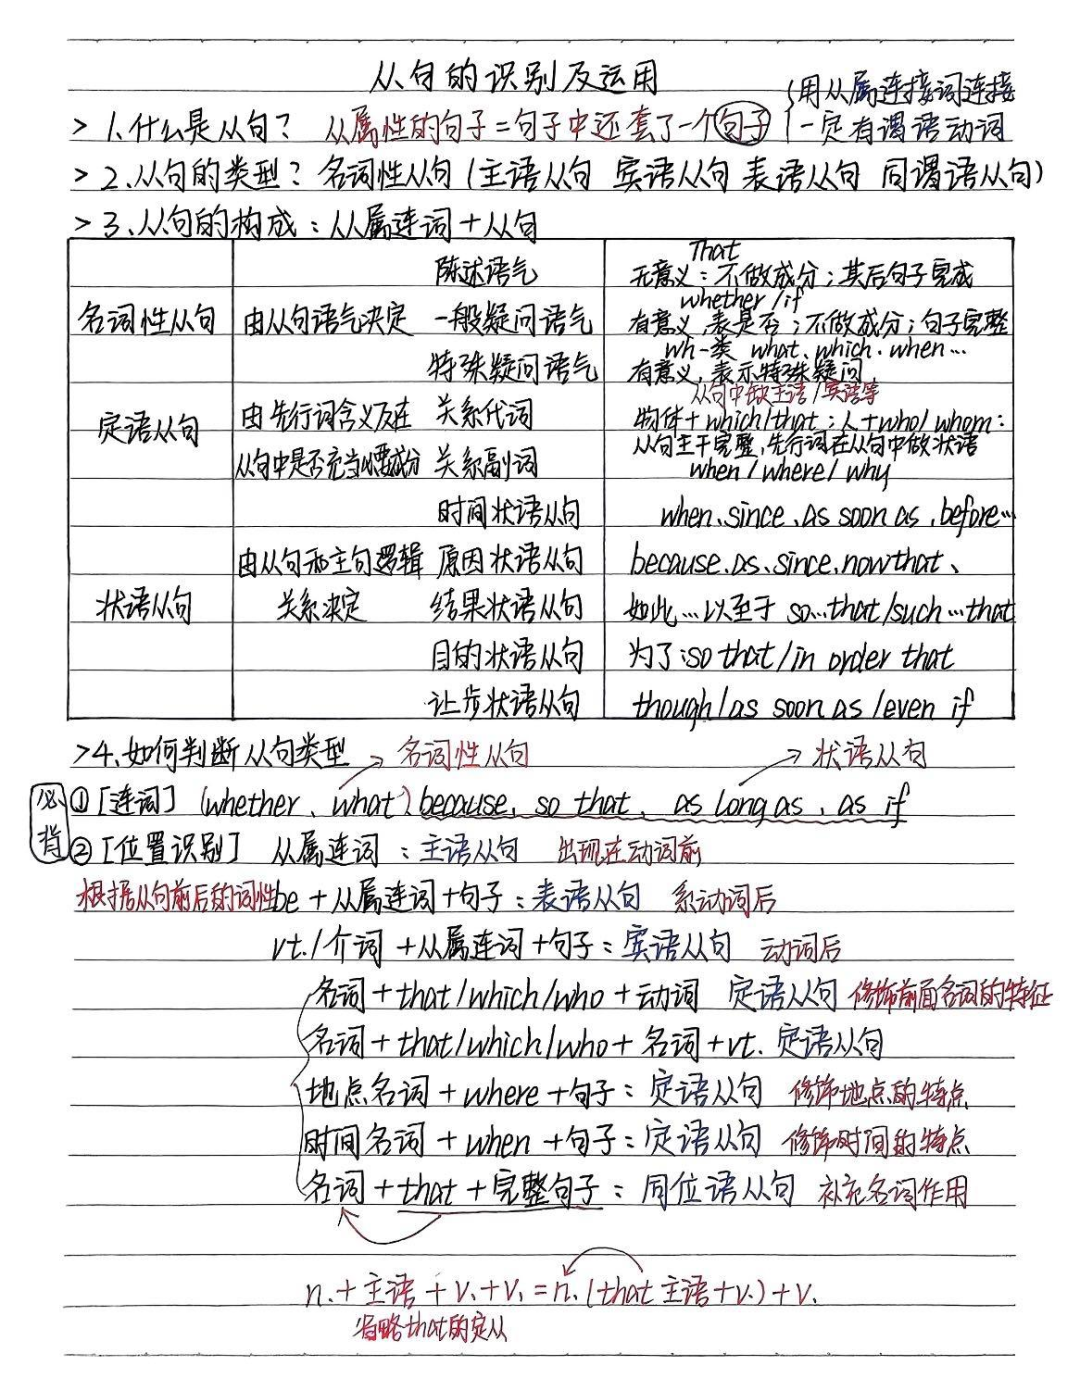 从句的识别及运用
{用从属连接词连接
> 1.什么是从句? 从属性的句子=句子中还套了一个句子 一定有谓语动词
> 2.从句的类型? 名词性从句(主语从句 宾语从句 表语从句 同谓语从句)
> 3.从句的构成:从属连词+从句
That
陈述语气 无意义:不做成分;其后句子完成
whether/if
名词性从句 由从句语气决定 一般疑问语气 有意义,表是否;不做成分;句子完整
wh-类 what、which.when…
特殊疑问语气 有意义,表示特殊疑问
从句中缺主语/宾语等
定语从句 由先行词含义及在 关系代词 物体+which/that;人+who/whom:
从句主干完整,先行词在从句中做状语
从句中是否充当必要成分 关系副词 when/where/why
时间状语从句 when、since、as soon as、before…
由从句和主句逻辑 原因状语从句 because、as、since、now that、
状语从句 关系决定 结果状语从句 如此…以至于 so…that/such…that
目的状语从句 为了:so that/in order that
让步状语从句 though/as soon as/even if
>4.如何判断从句类型 → 名词性从句 → 状语从句
必背 ①[连词] (whether、what) because, so that、as long as, as if
②[位置识别] 从属连词:主语从句 出现在动词前
根据从句前后的词性 be+从属连词+句子:表语从句 系动词后
vt./介词+从属连词+句子:宾语从句 动词后
名词+that/which/who+动词 定语从句 修饰前面名词的特征
名词+that/which/who+名词+vt. 定语从句
地点名词+where+句子:定语从句 修饰地点的特点
时间名词+when+句子:定语从句 修饰时间的特点
名词+that+完整句子:同位语从句 补充名词作用
n.+主语+v.+v.=n.(that 主语+v.)+v.
省略that的定从